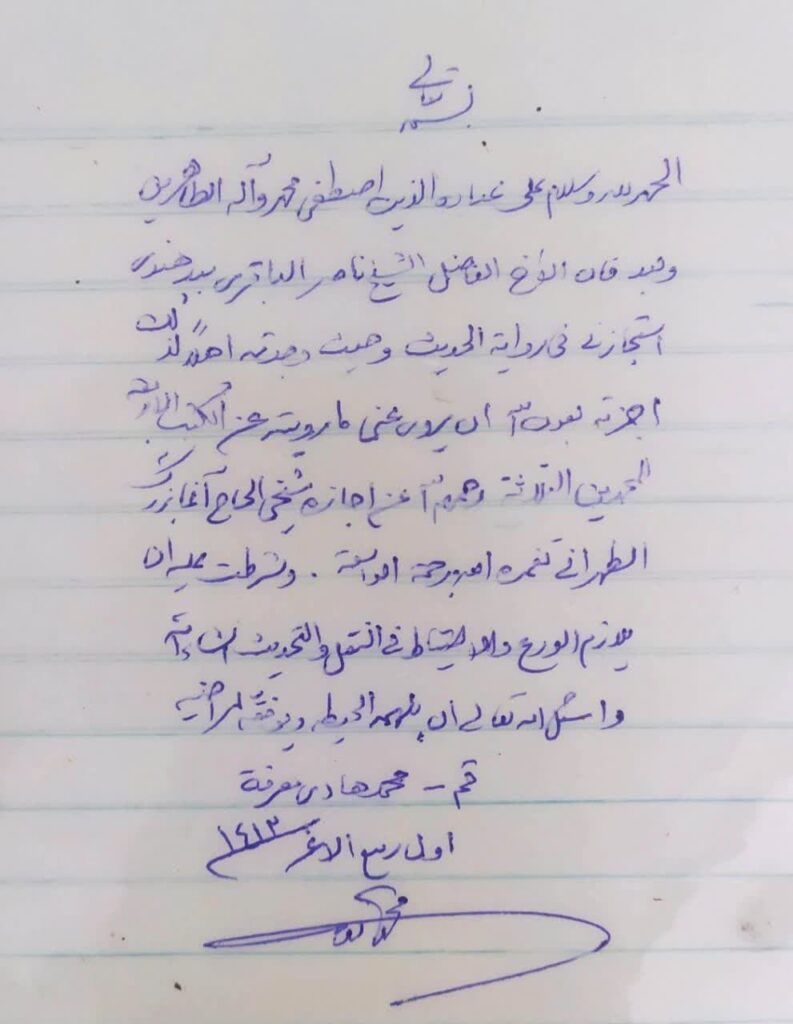 بسمه تعالى
الحمد لله وسلام على عباده الذين اصطفى محمد وآله الطاهرين
وبعد فان الأخ الفاضل الشيخ ناصر الباقري بيدهندي
استجازني في رواية الحديث وحيث وجدته اهلاً لذلك
اجزته بعون الله ان يروي عني ما رويته عن الكتب الأربعة
للمحمدين الثلاثة رحمهم الله عن اجازة شيخي الحاج آغا بزرك
الطهراني تغمده الله برحمته الواسعة . وشرطت عليه ان
يلازم الورع والاحتياط في النقل والتحديث ان شاء الله
واسئل الله تعالى ان يلهمه الحيطه ويوفقه لمراضيه
قم – محمد هادي معرفة
اول ربيع الاغر ١٤١٣